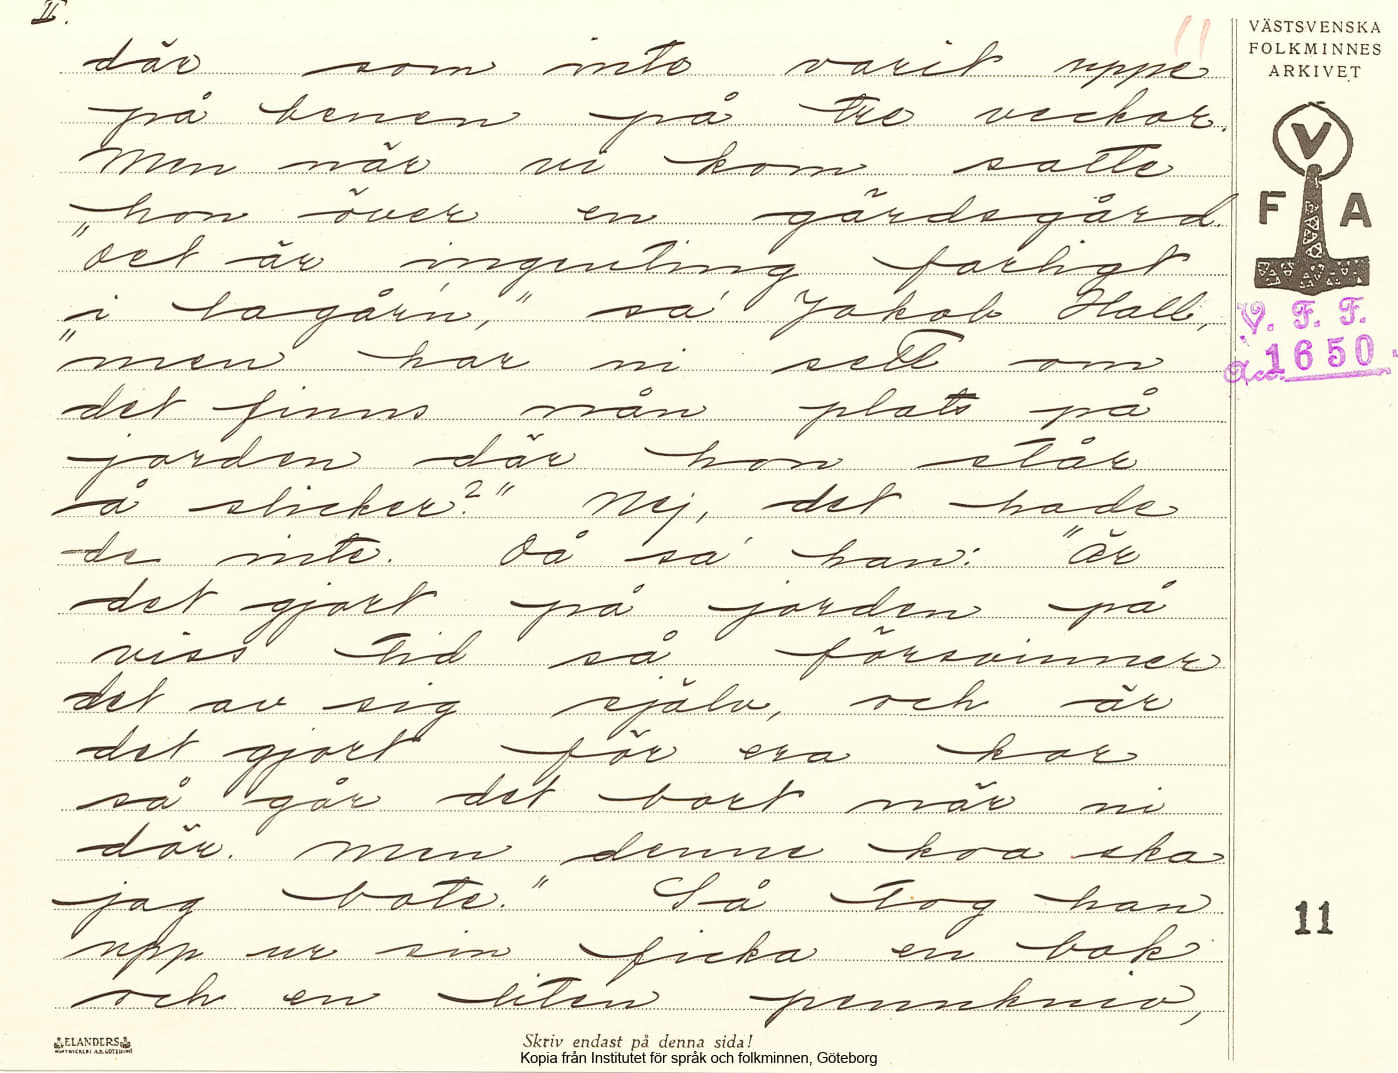 II.
11
där som inte varit uppe
på benen på tre veckor.
Men när vi kom satte
hon över en gärdsgård.
"Det är ingenting farligt
i lagårn," sa' Jakob Hall,
"men har ni sett om
det finns nån plats på
jorden där hon står
å slicker?" Nej, det hade
de inte. Då sa' han: "Är
det gjort på jorden på
viss tid så försvinner
det av sig själv, och är
det gjort för era kor
så går det bort när ni
dör. Men denne koa ska
jag bote." Så tog han
upp ur sin ficka en bok
och en liten pennkniv,
VÄSTSVENSKA
FOLKMINNES
ARKIVET
V
F A
V. F. F.
Acc. 1650
11
ELANDERS
Skriv endast på denna sida!
Kopia från Institutet för språk och folkminnen, Göteborg